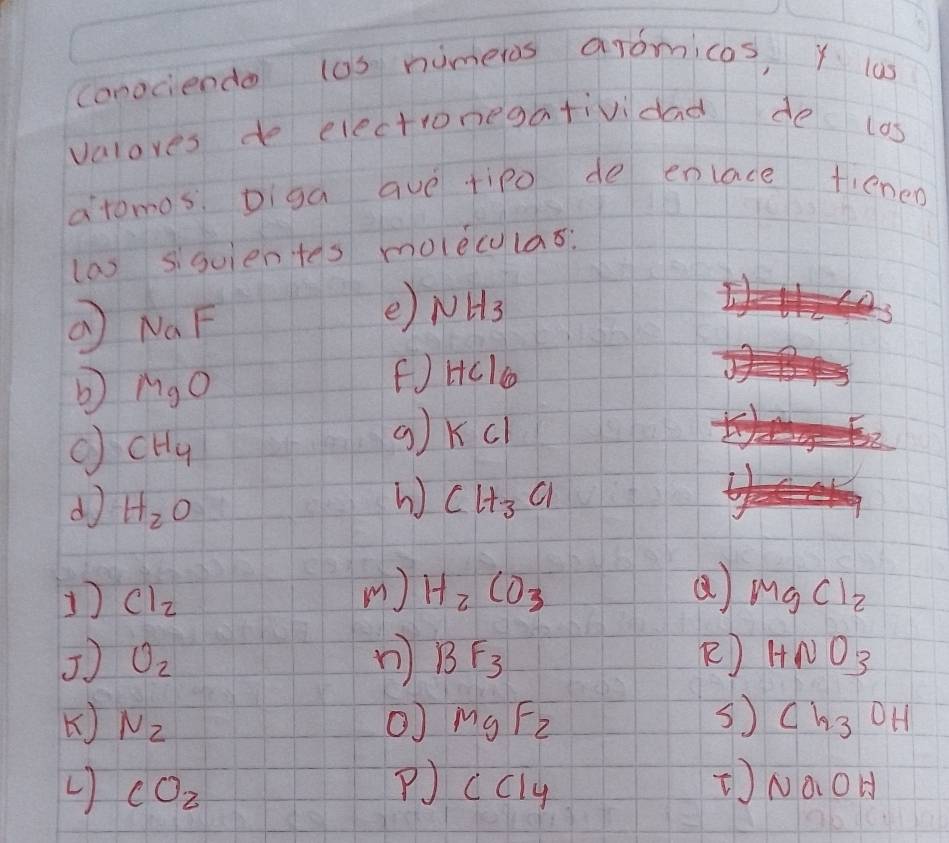 conociendo los números atómicos, y los
valores de electronegatividad de los
átomos. Diga qué tipo de enlace tienen
las siguientes moléculas:
a) NaF e) NH3
b) MgO f) HClO
c) CH4 g) KCl
d) H2O h) CH3Cl
I) Cl2 m) H2CO3 Q) MgCl2
J) O2 n) BF3 R) HNO3
K) N2 O) MgF2 S) Ch3OH
L) CO2 P) CCl4 T) NaOH